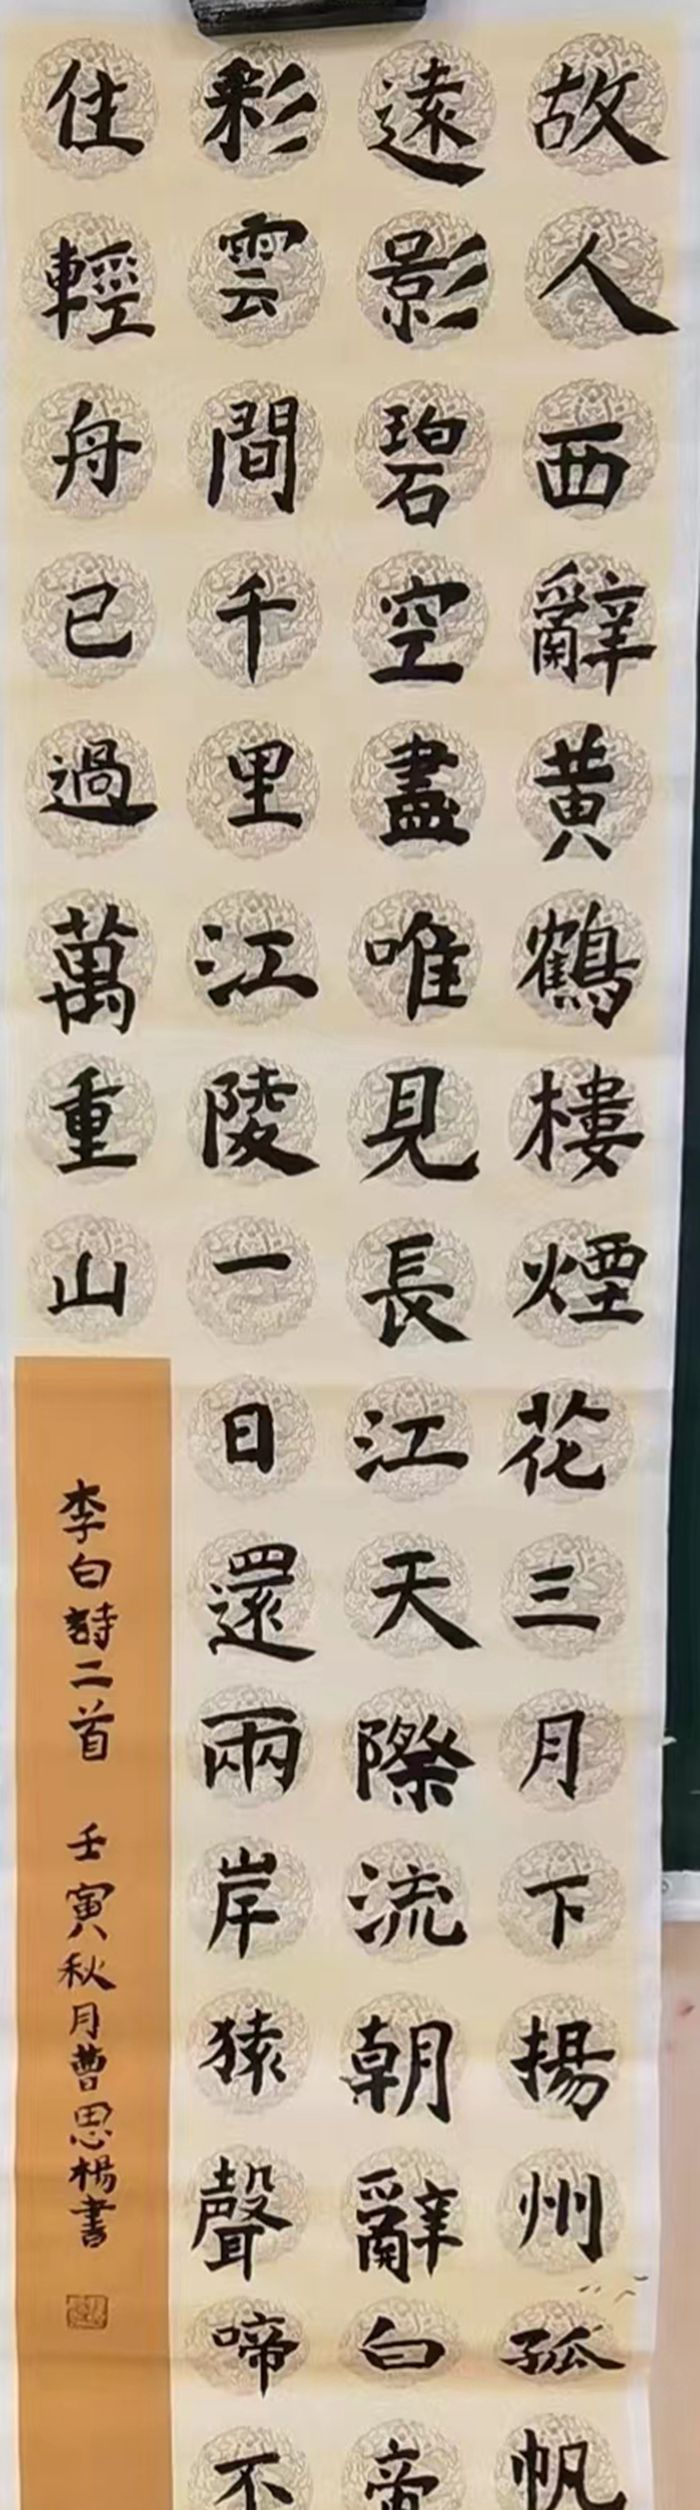 故人西辭黄鶴樓煙花三月下揚州孤帆
遠影碧空盡唯見長江天際流朝辭白帝
彩雲間千里江陵一日還兩岸猿聲啼不
住輕舟已過萬重山
李白詩二首 壬寅秋月曹思楊書